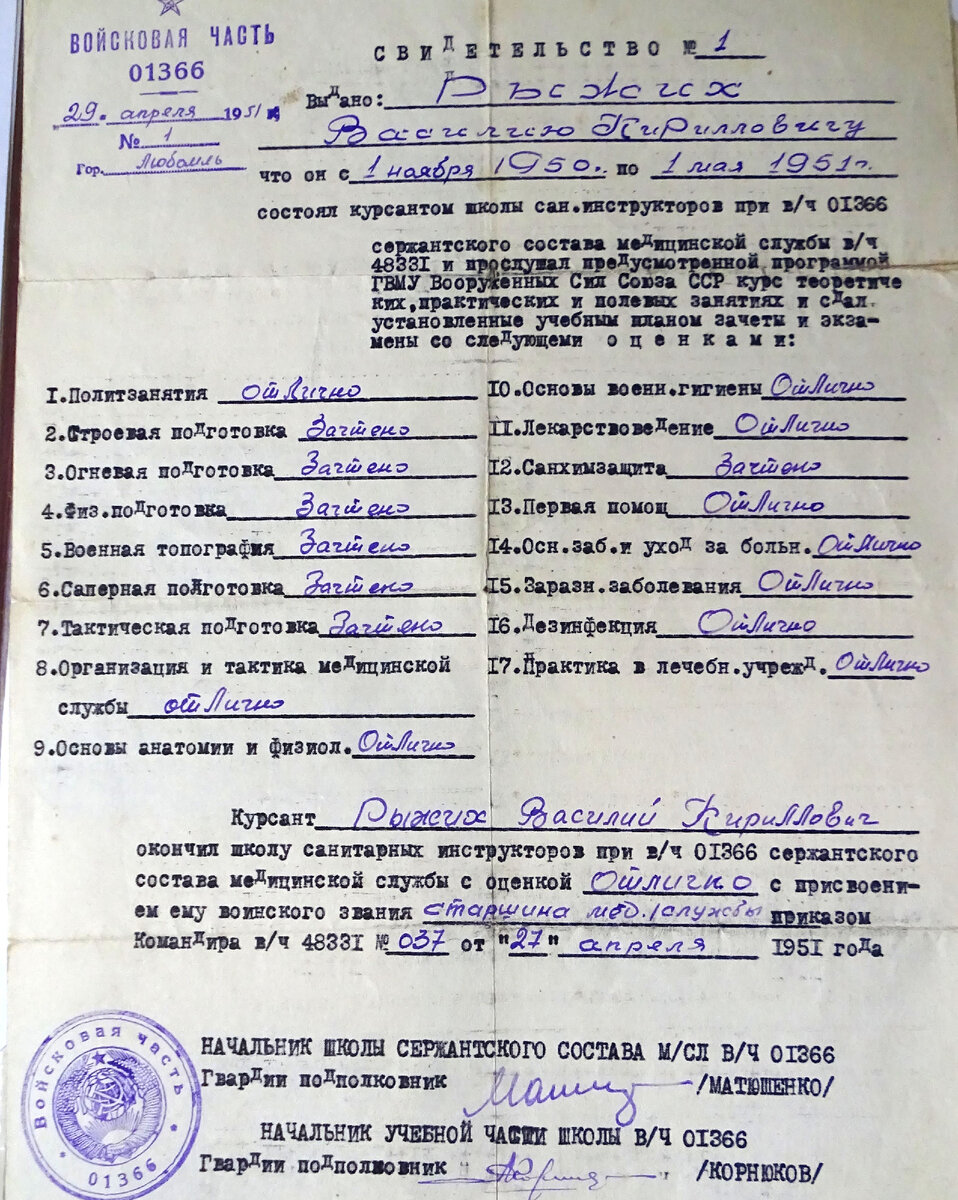 ВОЙСКОВАЯ ЧАСТЬ
01366
29. апреля 1951
№ 1
Гор. Любомль
СВИДЕТЕЛЬСТВО № 1
Выдано: Рыжих
Василию Кирилловичу
что он с 1 ноября 1950г. по 1 мая 1951г.
состоял курсантом школы сан.инструкторов при в/ч 01366
сержантского состава медицинской службы в/ч
48331 и прослушал предусмотренной программой
ГВМУ Вооруженных Сил Союза ССР курс теоретиче
ких,практических и полевых занятиях и сдал
установленные учебным планом зачеты и экза-
мены со следующеми оценками:
1.Политзанятия отлично
2.Строевая подготовка Зачтено
3.Огневая подготовка Зачтено
4.Физ.подготовка Зачтено
5.Военная топография Зачтено
6.Саперная подготовка Зачтено
7.Тактическая подготовка Зачтено
8.Организация и тактика медицинской
службы отлично
9.Основы анатомии и физиол. Отлично
10.Основы военн.гигиены Отлично
11.Лекарствоведение Отлично
12.Санхимзащита Зачтено
13.Первая помощ Отлично
14.Осн.заб.и уход за больн. Отлично
15.Заразн.заболевания Отлично
16.Дезинфекция Отлично
17.Практика в лечебн.учрежд. Отлично
Курсант Рыжих Василий Кириллович
окончил школу санитарных инструкторов при в/ч 01366 сержантского
состава медицинской службы с оценкой Отлично с присвоени-
ем ему воинского звания старшина мед. службы приказом
Командира в/ч 48331 № 037 от "27" апреля 1951 года
НАЧАЛЬНИК ШКОЛЫ СЕРЖАНТСКОГО СОСТАВА М/СЛ В/Ч 01366
Гвардии подполковник /МАТЮШЕНКО/
НАЧАЛЬНИК УЧЕБНОЙ ЧАСТИ ШКОЛЫ В/Ч 01366
Гвардии подполковник " " /КОРНЮКОВ/
Войсковая часть
* 01366 *